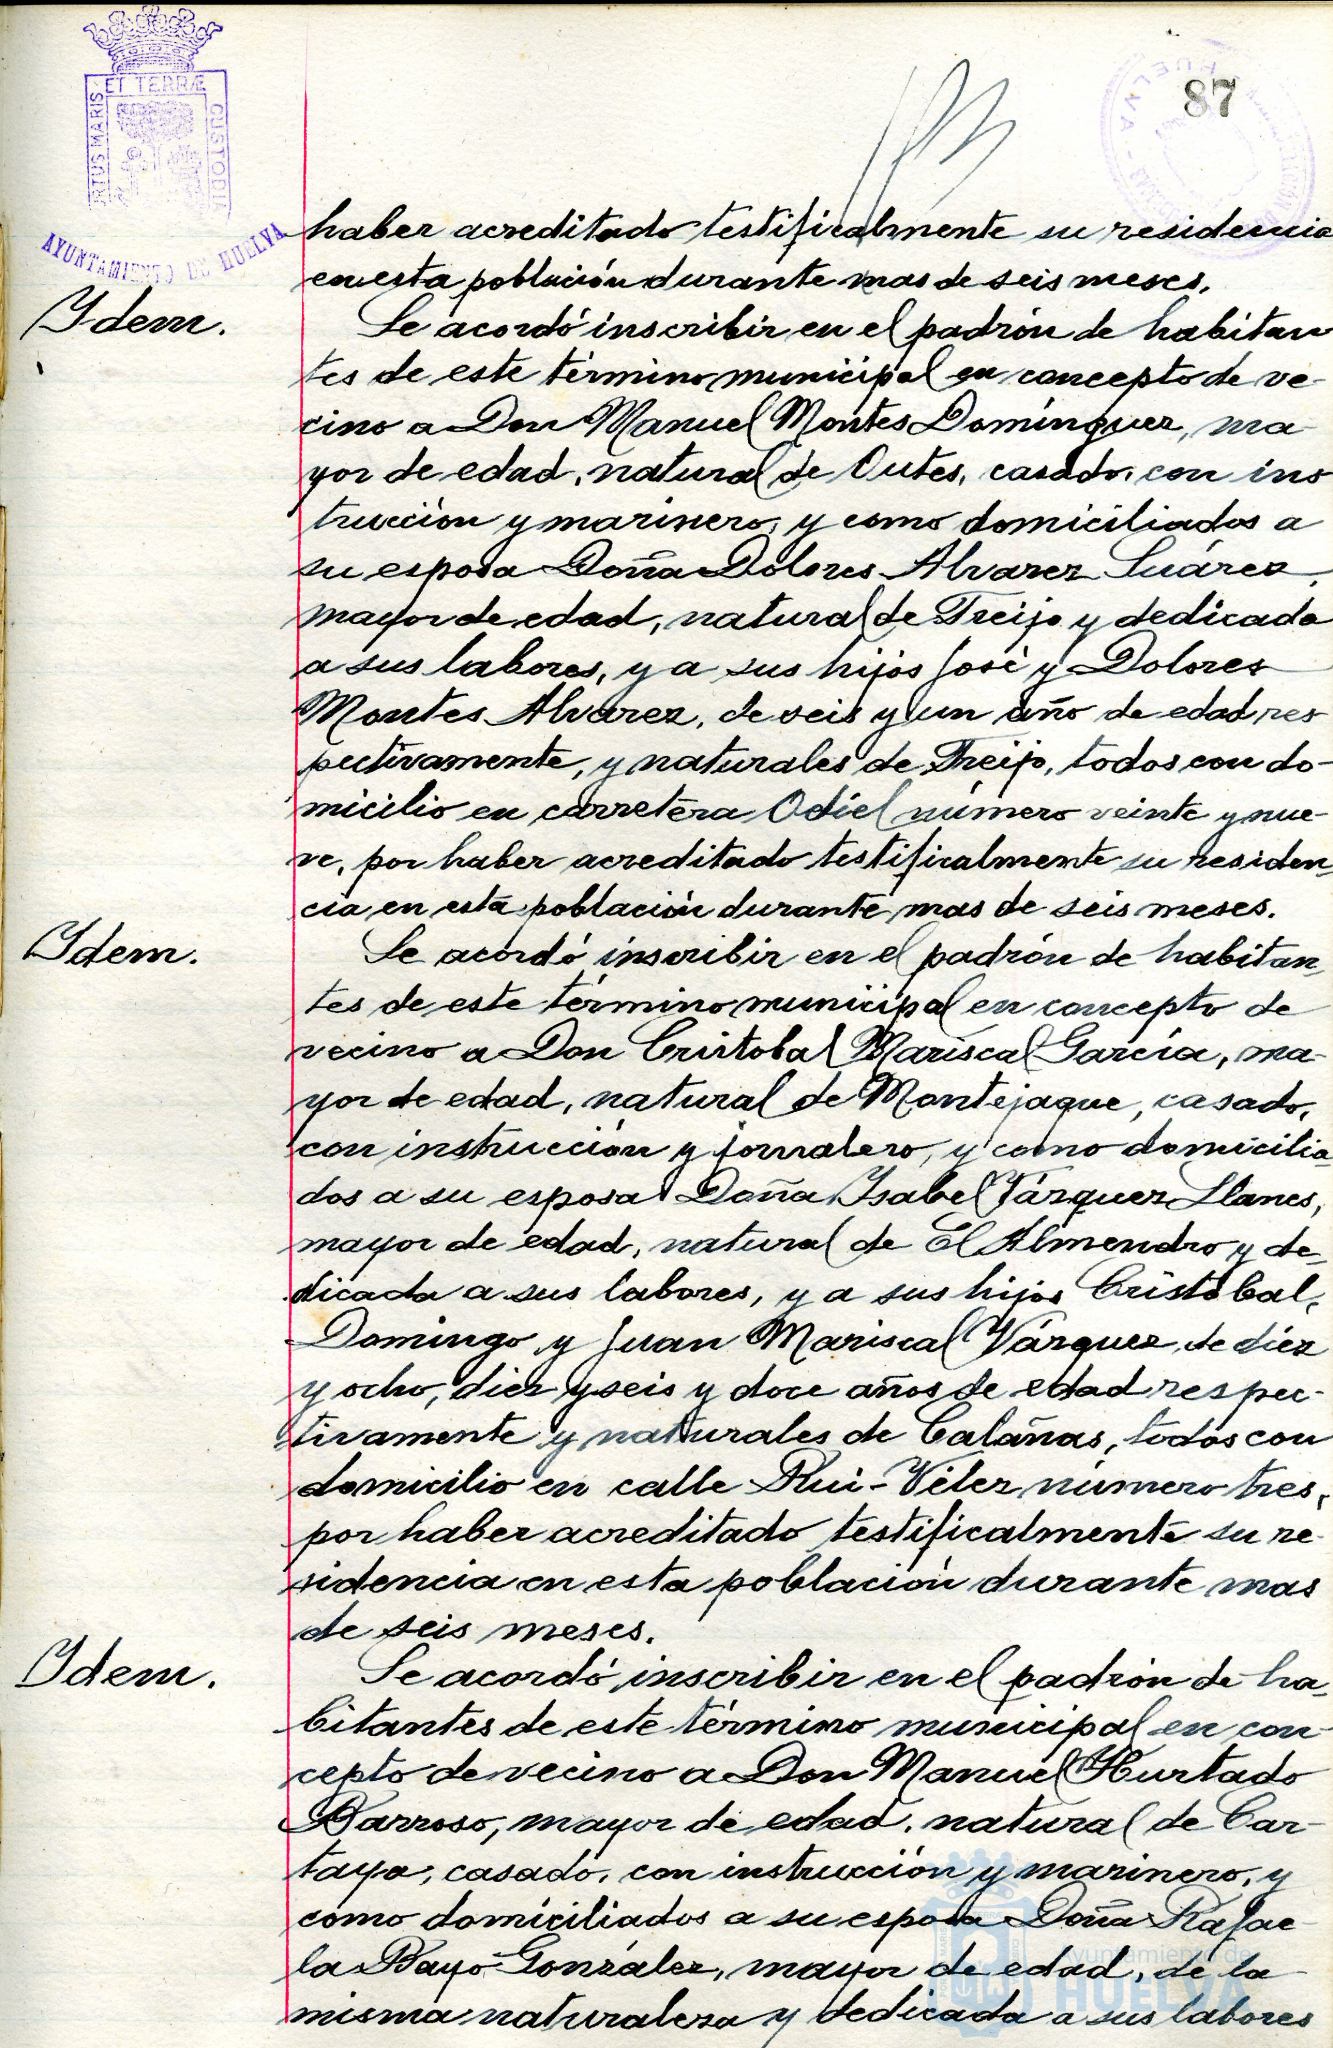 ET TERRÆ
PORTUS MARIS
CUSTODIA
AYUNTAMIENTO DE HUELVA
HUELVA
87
haber acreditado testificalmente su residencia
en esta población durante mas de seis meses.
Idem.
Se acordó inscribir en el padrón de habitan
tes de este término municipal en concepto de ve-
cino a Don Manuel Montes Domínguez, ma-
yor de edad, natural de Outes, casado, con ins
trucción y marinero, y como domiciliados a
su esposa Doña Dolores Alvarez Suárez,
mayor de edad, natural de Freijo y dedicada
a sus labores, y a sus hijos José y Dolores
Montes Alvarez, de seis y un año de edad res
pectivamente, y naturales de Freijo, todos con do-
micilio en carretera Odiel número veinte y nue-
ve, por haber acreditado testificalmente su residen-
cia en esta población durante mas de seis meses.
Idem.
Se acordó inscribir en el padrón de habitan-
tes de este término municipal en concepto de
vecino a Don Cristobal Mariscal García, ma-
yor de edad, natural de Montejaque, casado,
con instrucción y jornalero, y como domicilia-
dos a su esposa Doña Isabel Vázquez Llanes,
mayor de edad, natural de El Almendro y de-
dicada a sus labores, y a sus hijos Cristobal,
Domingo y Juan Mariscal Vázquez, de diez
y ocho, diez y seis y doce años de edad respec-
tivamente y naturales de Calañas, todos con
domicilio en calle Rui-Vélez número tres,
por haber acreditado testificalmente su re-
sidencia en esta población durante mas
de seis meses.
Idem.
Se acordó inscribir en el padrón de ha-
bitantes de este término municipal en con-
cepto de vecino a Don Manuel Hurtado
Barroso, mayor de edad, natural de Car-
taya, casado, con instrucción y marinero, y
como domiciliados a su esposa Doña Rafae-
la Bayo González, mayor de edad, de la
misma naturaleza y dedicada a sus labores
Ayuntamiento de
HUELVA